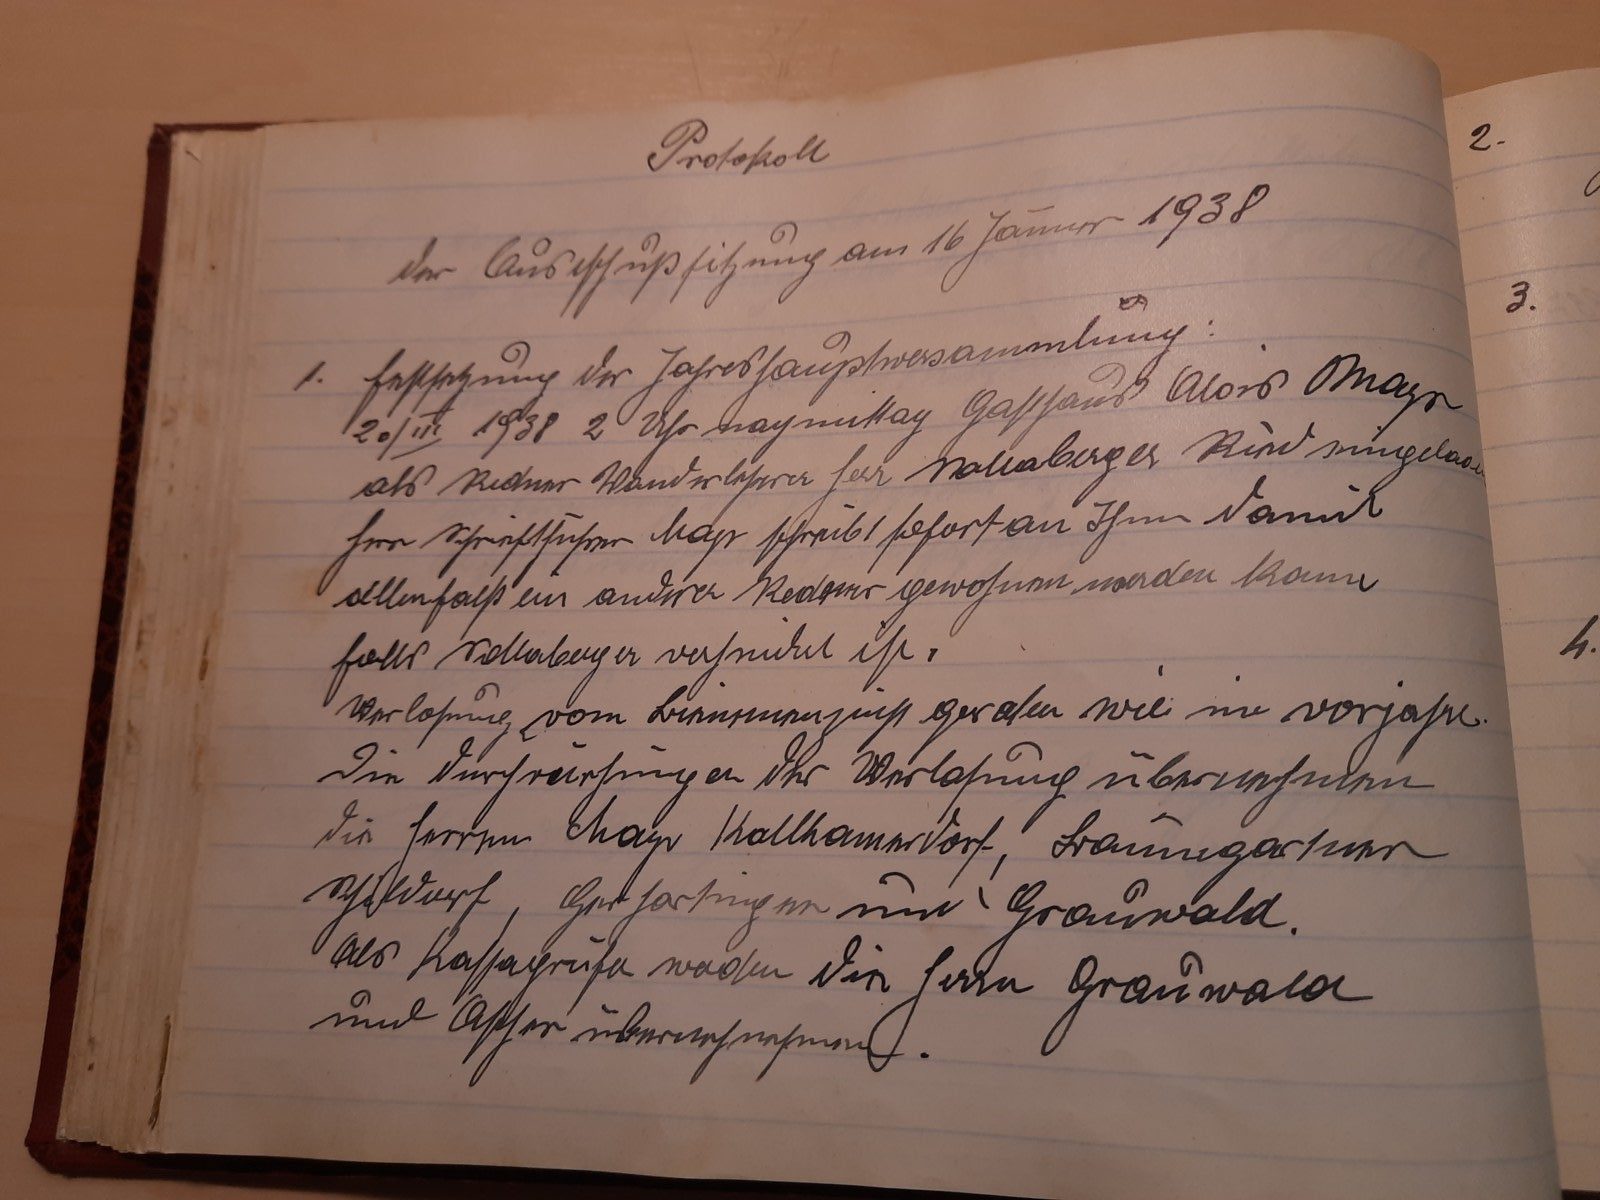 Protokoll
der Ausschußsitzung am 16 Jänner 1938
1. Festsetzung der Jahreshauptversammlung:
20/III 1938 2 Uhr naymittag Gasthaus Alois Mayr
als Redner Wanderlehrer Herr Ried eingeladen
Herr Schriftführer Mayr schreibt sofort an Ihm damit
allenfalß ein anderer Redner gewohnen werden kann
falls verhindert ist.
Verlosung vom geräten wie im vorjahre.
Die durchführungen der Verlosung übernehmen
die Herren Mayr Kallhamerdorf, Baumgartner
Schildorf, Gerhartinger und Grauwald.
Als Kassaprüfer werden die Herrn Grauwald
und übernehmen.
2.
3.
4.